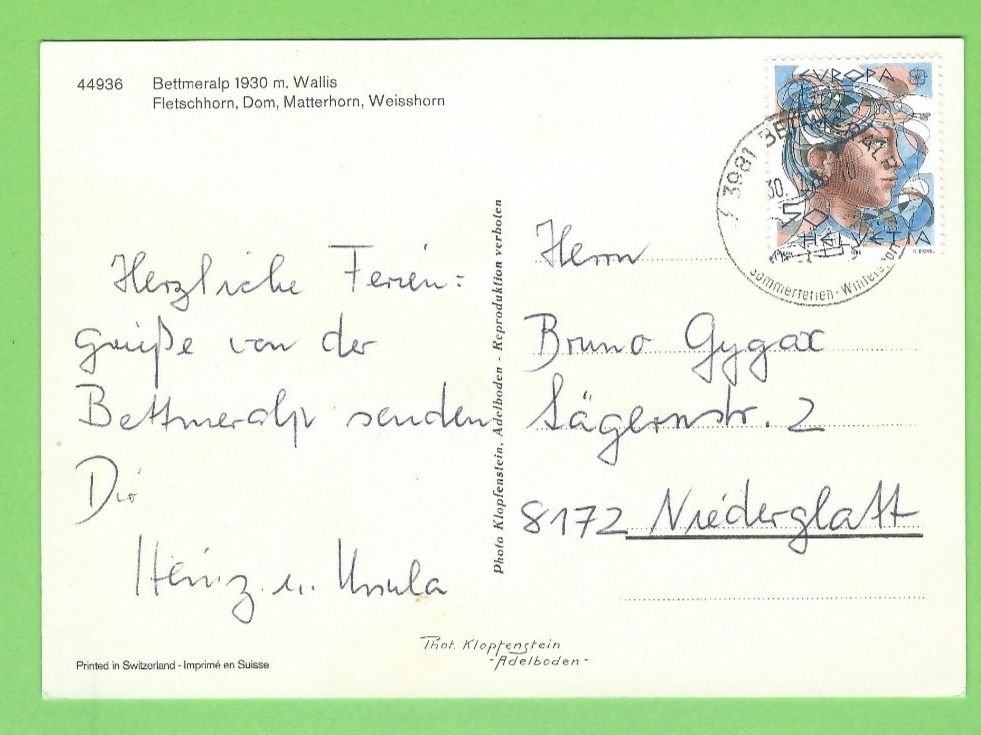 44936 Bettmeralp 1930 m. Wallis
Fletschhorn, Dom, Matterhorn, Weisshorn
EVROPA
3981 BETTMERALP
30.
50
HELVETIA
Sommerferien - Wintersport
Herzliche Ferien=
grüße von der
Bettmeralp senden
Dir
Heinz u. Ursula
Photo Klopfenstein, Adelboden - Reproduktion verboten
Herrn
Bruno Gygax
Lägernstr. 2
8172 Niederglatt
Phot. Klopfenstein
- Adelboden -
Printed in Switzerland - Imprimé en Suisse